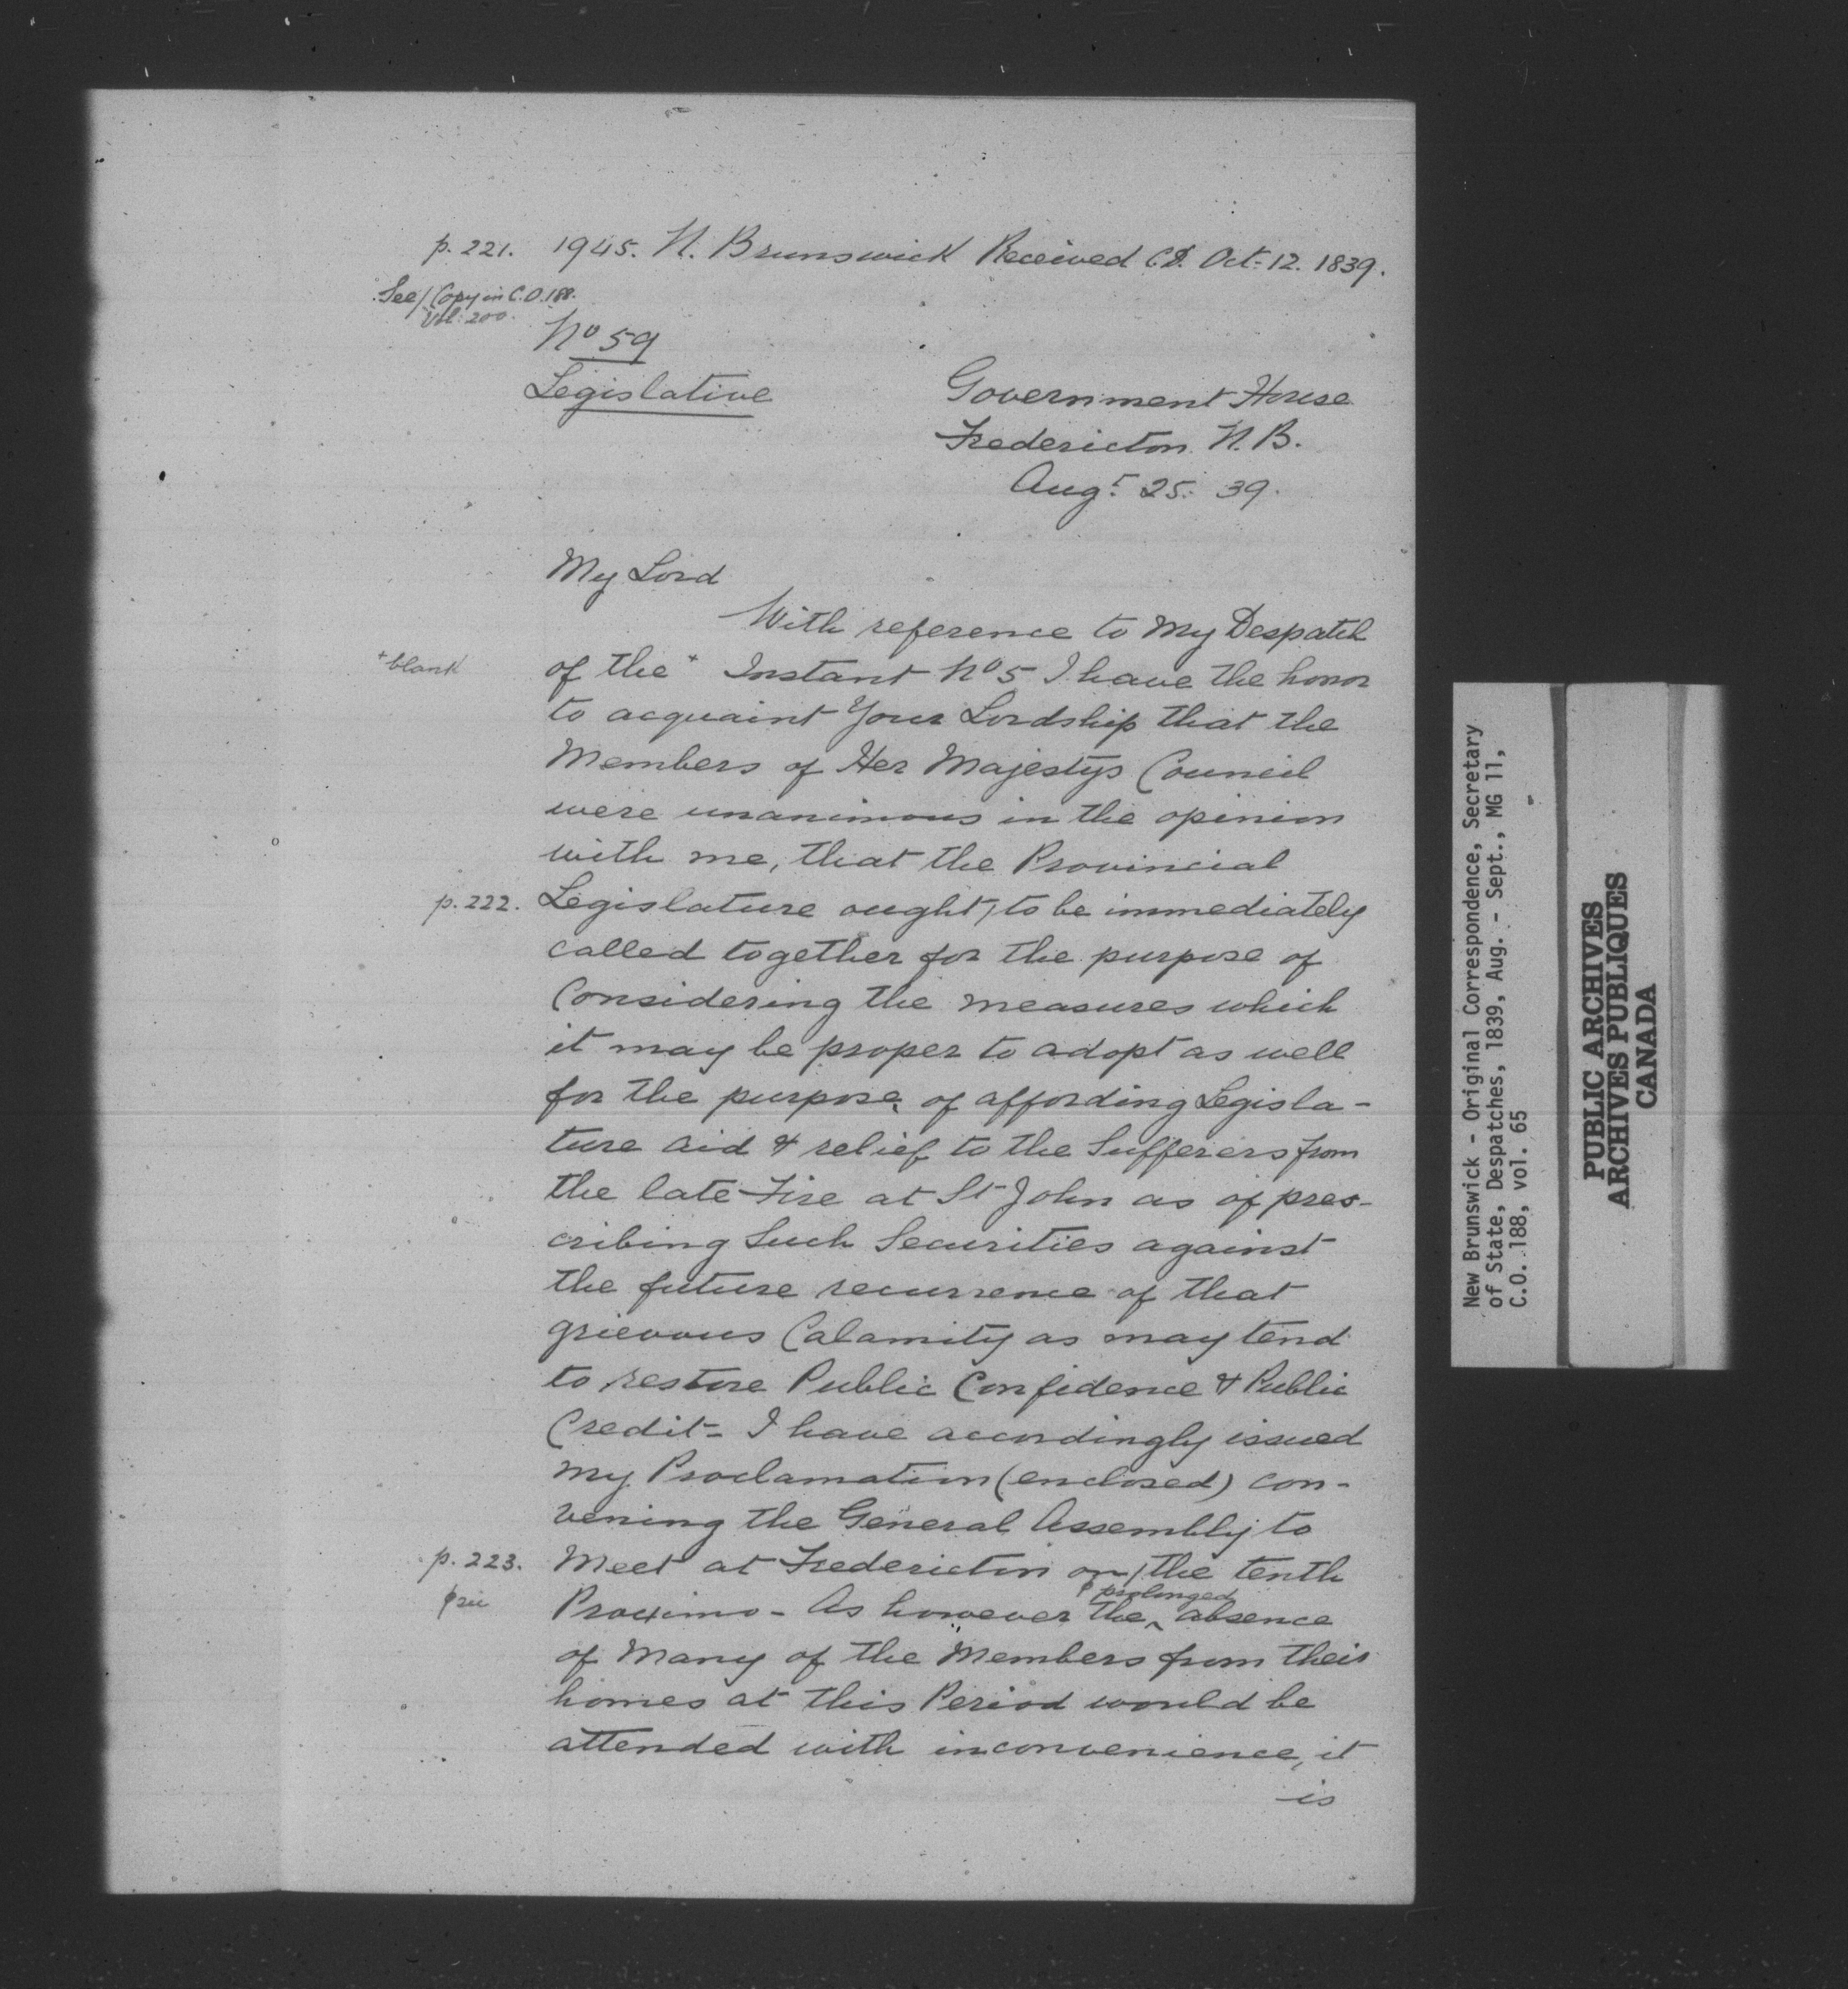 p. 221. 1945. N. Brunswick Received C.D. Oct. 12. 1839.
See / Copy in C.O. 188.
Vol. 200.
No 59
Legislative
Government House
Fredericton N.B.
Augt 25. 39.
My Lord
With reference to My Despatch
+blank
of the + Instant No 5 I have the honor
to acquaint Your Lordship that the
Members of Her Majestys Council
were unanimous in the opinion
with me, that the Provincial
p. 222. Legislature ought / to be immediately
called together for the purpose of
Considering the measures which
it may be proper to adopt as well
for the purpose, of affording Legisla-
ture aid & relief to the Sufferers from
the late Fire at St John as of pres-
cribing Such Securities against
the future recurrence of that
grievous Calamity as may tend
to restore Public Confidence & Public
Credit - I have accordingly issued
my Proclamation (enclosed) con-
vening the General Assembly to
p. 223. Meet at Fredericton on / the tenth
prolonged
Proximo - As however the ^ absence
of Many of the Members from their
homes at this Period would be
attended with inconvenience, it
is
New Brunswick - Original Correspondence, Secretary
of State, Despatches, 1839, Aug. - Sept., MG 11,
C.O. 188, vol. 65
PUBLIC ARCHIVES
ARCHIVES PUBLIQUES
CANADA